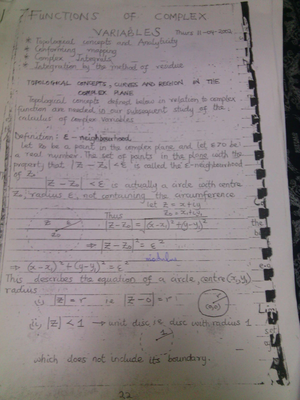 FUNCTIONS OF COMPLEX
VARIABLES
* Topological concepts and Analyticity
* Conforming mapping
* Complex Integrals
* Integration by the method of residue
TOPOLOGICAL CONCEPTS, CURVES AND REGION IN THE
COMPLEX PLANE
Topological concepts defined below in relation to complex
function are needed in our subsequent study of the
calculus of complex variables
Definition: ε - neighbourhood
Let z₀ be a point in the complex plane and let ε>0 be
a real number. The set of points in the plane with the
property that |Z - Z₀| < ε is called the ε-neighbourhood
of Z₀.
|Z - Z₀| < ε is actually a circle with centre
Z₀, radius ε, not containing the circumference
Let Z = x+iy
Z₀ = x₀+iy₀
Thus
|Z-Z₀| = √(x-x₀)²+(y-y₀)²
⇒ |Z-Z₀|² = ε²
⇒ (x-x₀)²+(y-y₀)² = ε²
This describes the equation of a circle, centre (x₀,y₀)
radius
(i) |Z| = r i.e |Z-0| = r
(0,0)
(ii) |Z| < 1 → unit disc i.e disc with radius 1
which does not include its boundary.
22